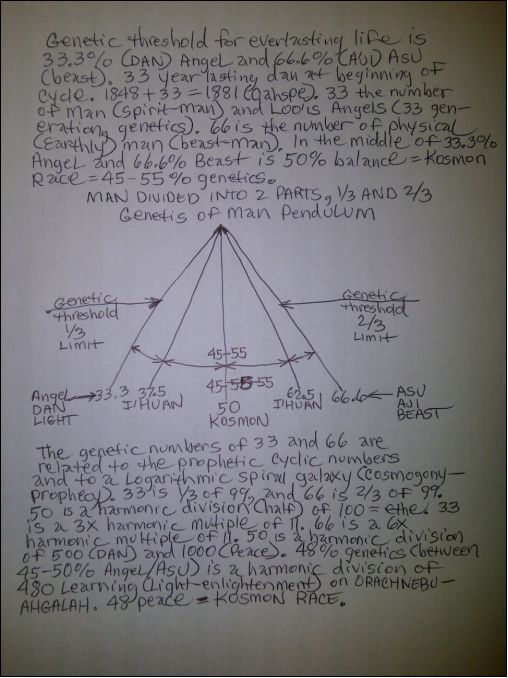 Genetic threshold for everlasting life is
33.3% (DAN) Angel and 66.6% (AUI) ASU
(beast). 33 year lasting dan at beginning of
cycle. 1848+33=1881 (Oahspe). 33 the number
of man (spirit-man) and Loo'is Angels (33 gen-
eration, genetics). 66 is the number of physical
(Earthly) man (beast-man). In the middle of 33.3%
Angel and 66.6% Beast is 50% balance = Kosmon
Race = 45-55% genetics.
MAN DIVIDED INTO 2 PARTS, 1/3 AND 2/3
Genetis of Man Pendulum
Genetic threshold 1/3 Limit
Genetic threshold 2/3 Limit
45-55
45-55-55
Angel DAN LIGHT
33.3
37.5
I'HUAN
50
KOSMON
62.5
I'HUAN
66.6
ASU AJI BEAST
The genetic numbers of 33 and 66 are
related to the prophetic cyclic numbers
and to a Logarithmic spiral galaxy (cosmogony-
prophecy). 33 is 1/3 of 99, and 66 is 2/3 of 99.
50 is a harmonic division (half) of 100 = ethe. 33
is a 3X harmonic mutiple of 11. 66 is a 6X
harmonic multiple of 11. 50 is a harmonic division
of 500 (DAN) and 1000 (Peace). 48% genetics (between
45-50% Angel/Asu) is a harmonic division of
480 Learning (Light-enlightenment) on ORACHNEBU-
AHGALAH. 48 peace = KOSMON RACE.